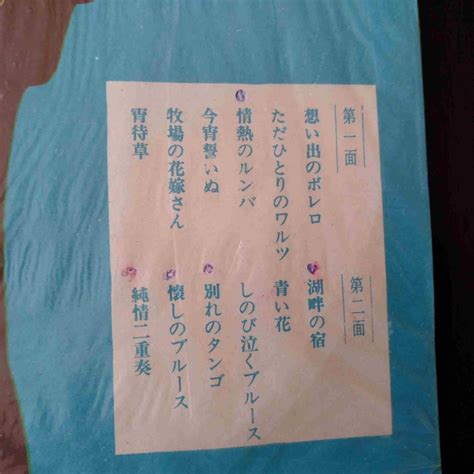 第一面
想い出のボレロ
ただひとりのワルツ
情熱のルンバ
今宵誓いぬ
牧場の花嫁さん
宵待草
第二面
湖畔の宿
青い花
しのび泣くブルース
別れのタンゴ
懐しのブルース
純情二重奏